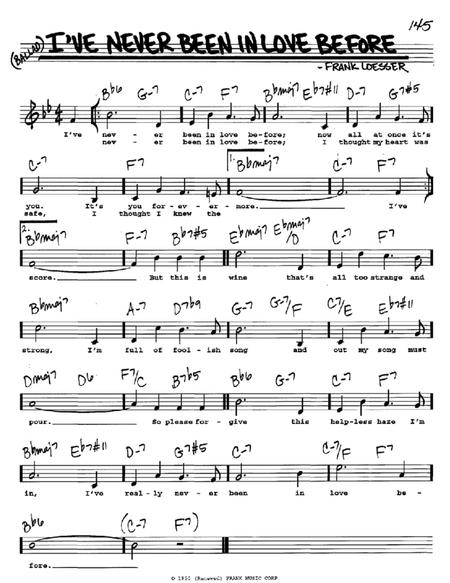 145
(BALLAD) I'VE NEVER BEEN IN LOVE BEFORE
- FRANK LOESSER
Bb6 G-7 C-7 F7 Bbmaj7 Eb7#11 D-7 G7#5
I've nev - er been in love be-fore; now all at once it's
nev - er been in love be-fore; I thought my heart was
C-7 F7 1. Bbmaj7
you. It's you for-ev-er- more. I've
safe, I thought I knew the
2. Bbmaj7 F-7 Bb7#5 Ebmaj7 Ebmaj7/D C-7 F7
score. But this is wine that's all too strange and
Bbmaj7 A-7 D7b9 G-7 G-7/F C7/E Eb7#11
strong, I'm full of fool - ish song and out my song must
Dmaj7 D6 F7/C B7b5 Bb6 G-7 C-7 F7
pour. So please for - give this help-less haze I'm
Bbmaj7 Eb7#11 D-7 G7#5 C-7 C-7/F F7
in, I've real-ly nev-er been in love be -
Bb6 (C-7 F7)
fore.
© 1950 (Renewed) FRANK MUSIC CORP.